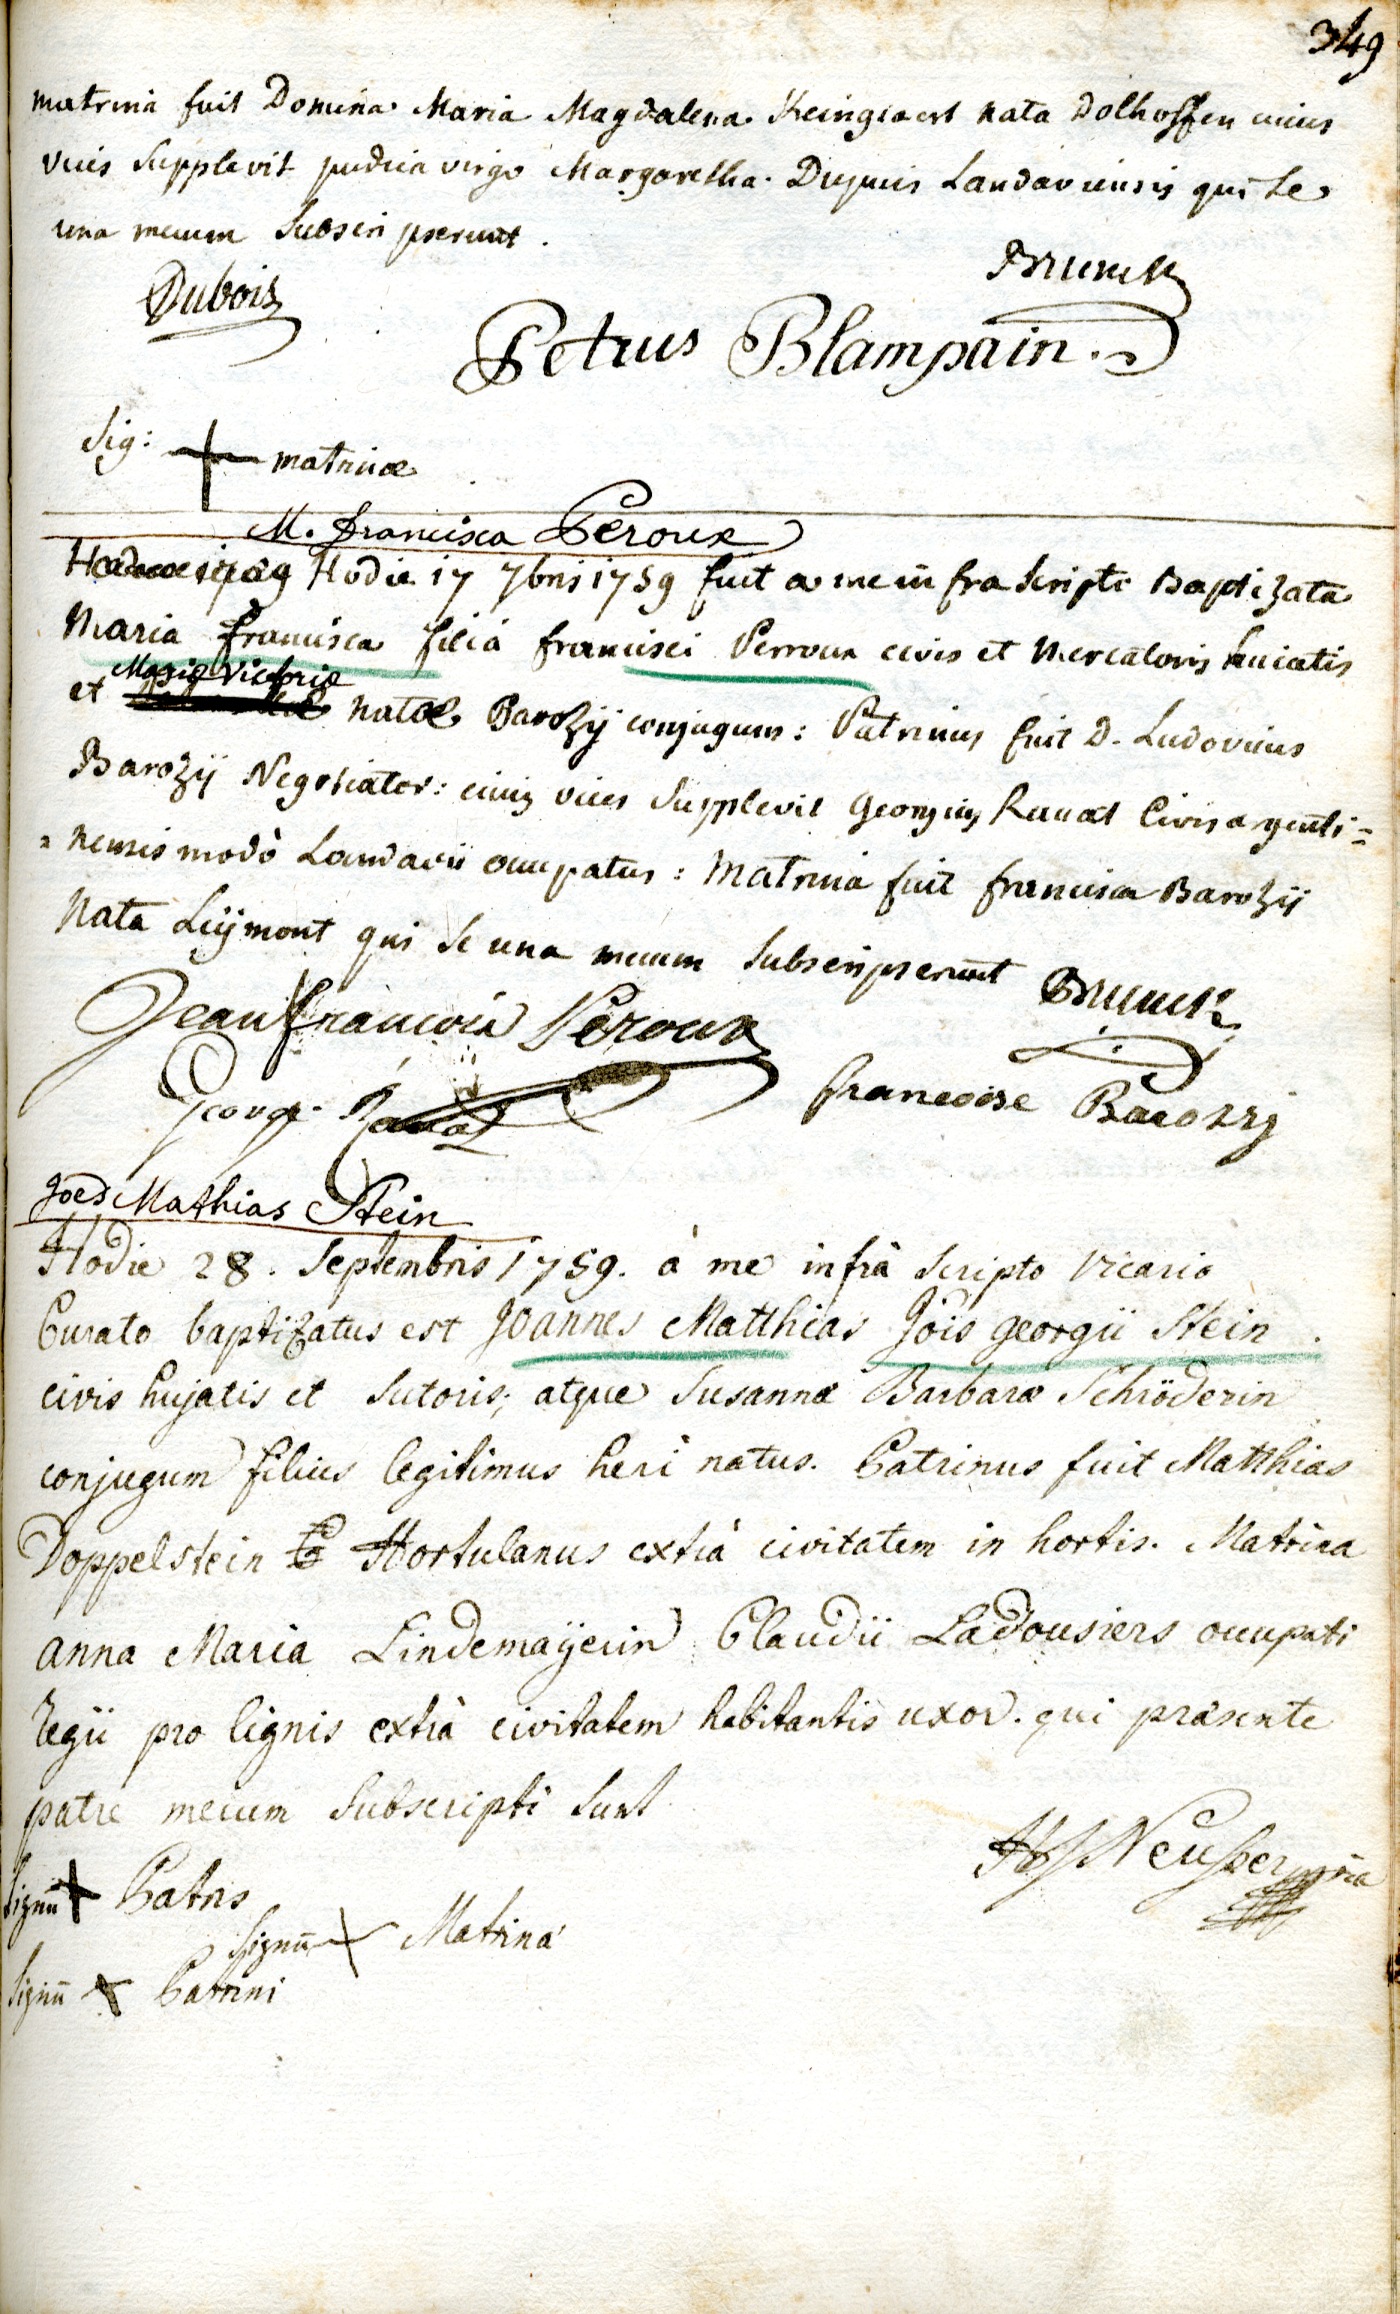 349
matrina fuit Domina Maria Magdalena Keingiaert nata Dolhoffen cuius
vices supplevit pudica virgo Margaretha Dupuis Landaviensis qui se
una mecum subscripserunt.
Brunck
Dubois
Petrus Blampain.
Sig: + matrinæ
M. Francisca Peroux
Hodie 17 7bris 1759 fuit a me infra scripto Baptizata
Maria Francisca filia francisci Perroux civis et Mercatoris huiatis
Mariæ Victoriæ
et natæ Barozij conjugum: Patrinus fuit D. Ludovicus
Barozij Negotiator: cuius vices supplevit Georgius Ruat Civis argenti=
=nensis modò Landavii occupatus: Matrina fuit francisca Barozij
Nata Leijmont qui se una mecum subscripserunt
Brunck
Jean François Péroux
George
francoise Barozzij
Joes Mathias Stein
Hodie 28. Septembris 1759. à me infrà scripto Vicario
Curato baptizatus est Joannes Matthias Jois georgii Stein.
civis hujatis et sutoris, atque Susannæ Barbaræ Schröderin
conjugum filius legitimus heri natus. Patrinus fuit Matthias
Doppelstein Hortulanus extrà civitatem in hortis. Matrina
anna Maria Lindemaÿerin Claudii Ladousiers occupati
regii pro lignis extrà civitatem habitantis uxor. qui præsente
patre mecum subscripti sunt
Signū + Patris
Signū + Matrina
Signū + Patrini